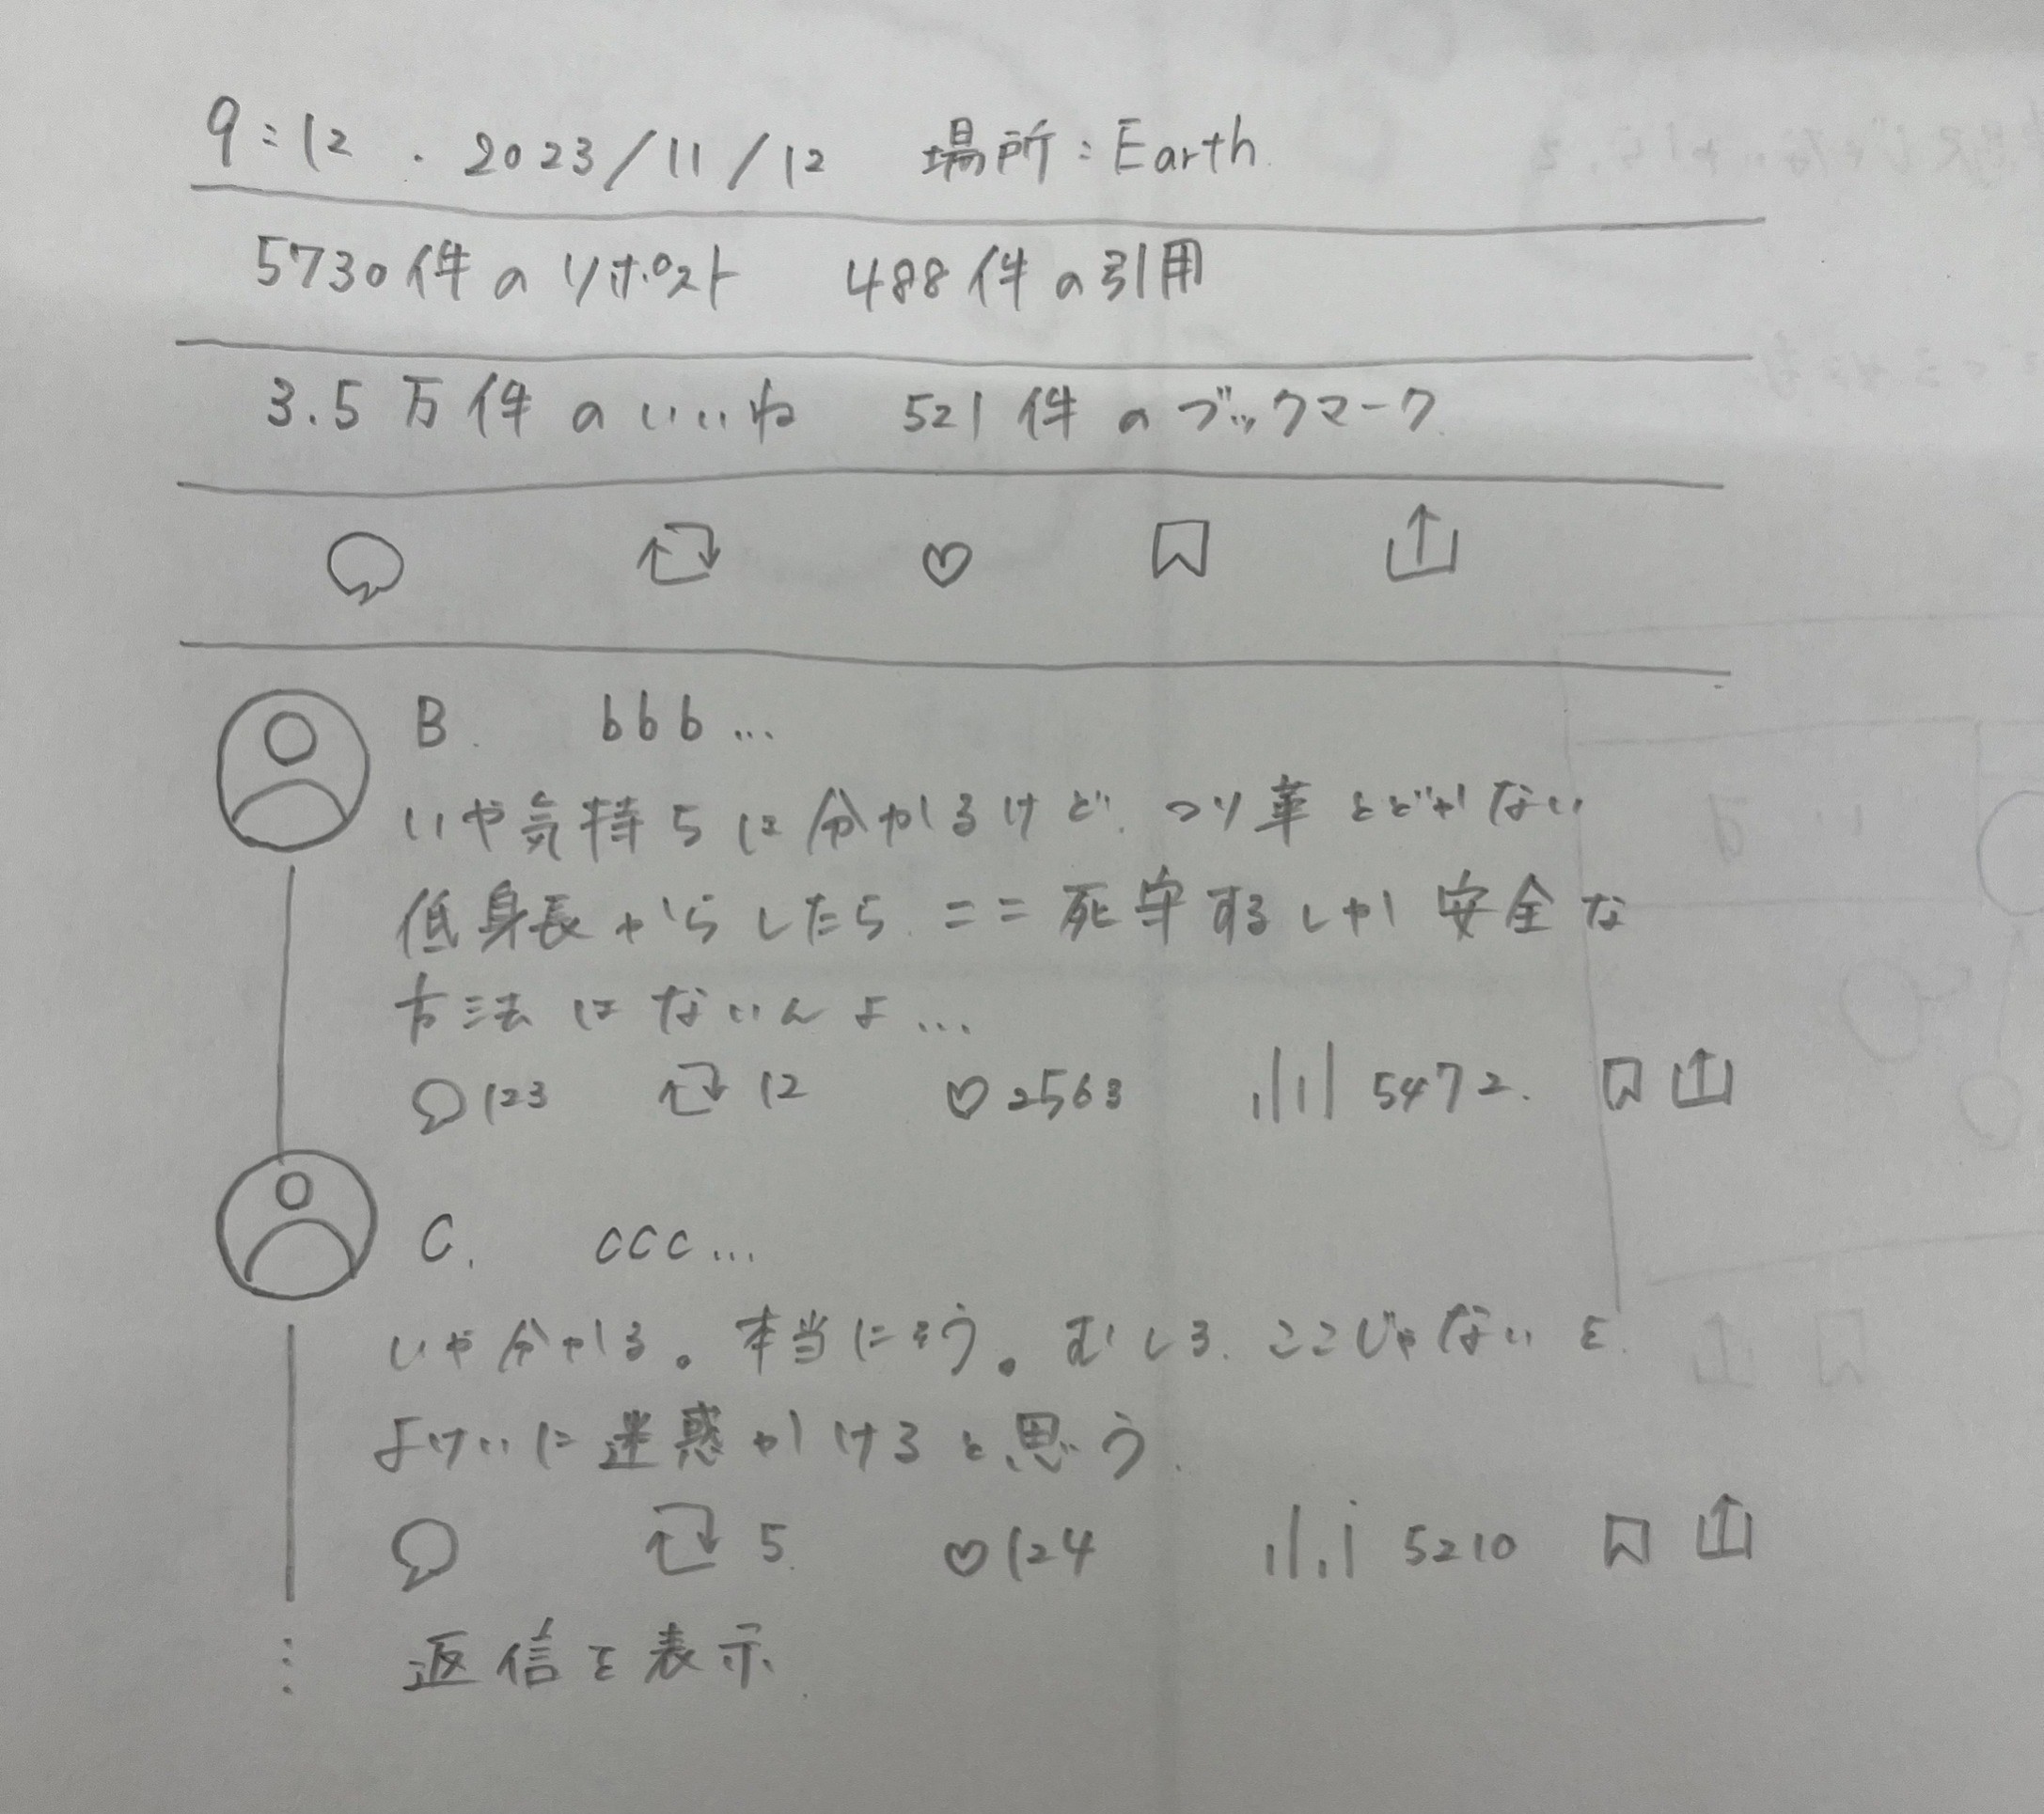 9:12 · 2023/11/12 場所:Earth
5730件のリポスト 488件の引用
3.5万件のいいね 521件のブックマーク
B. bbb...
いや気持ちは分かるけど、つり革とどかない
低身長からしたら、ここ死守するしか安全な
方法はないんよ...
123 12 2563 5472.
C. ccc...
いや分かる。本当にそう。むしろ、ここじゃないと
よけいに迷惑かけると思う.
5. 124 5210
返信を表示.